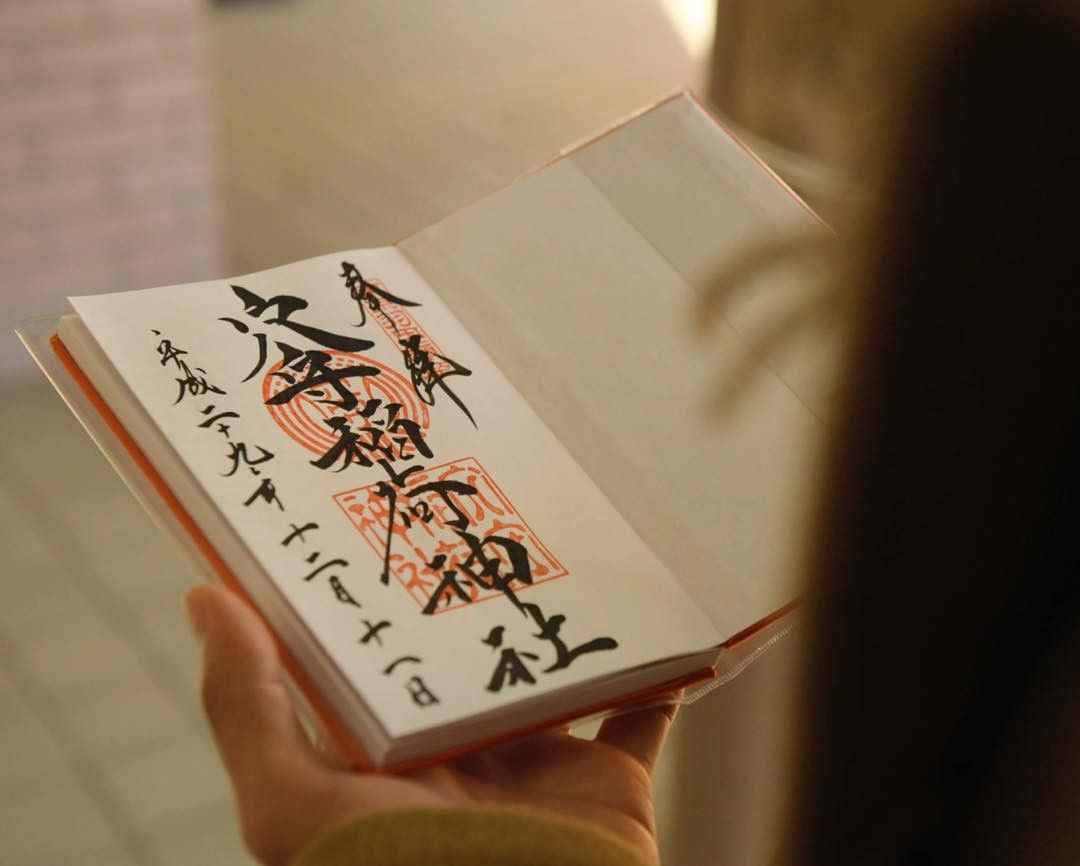 奉拝
穴守稲荷神社
平成二十九年十二月十一日